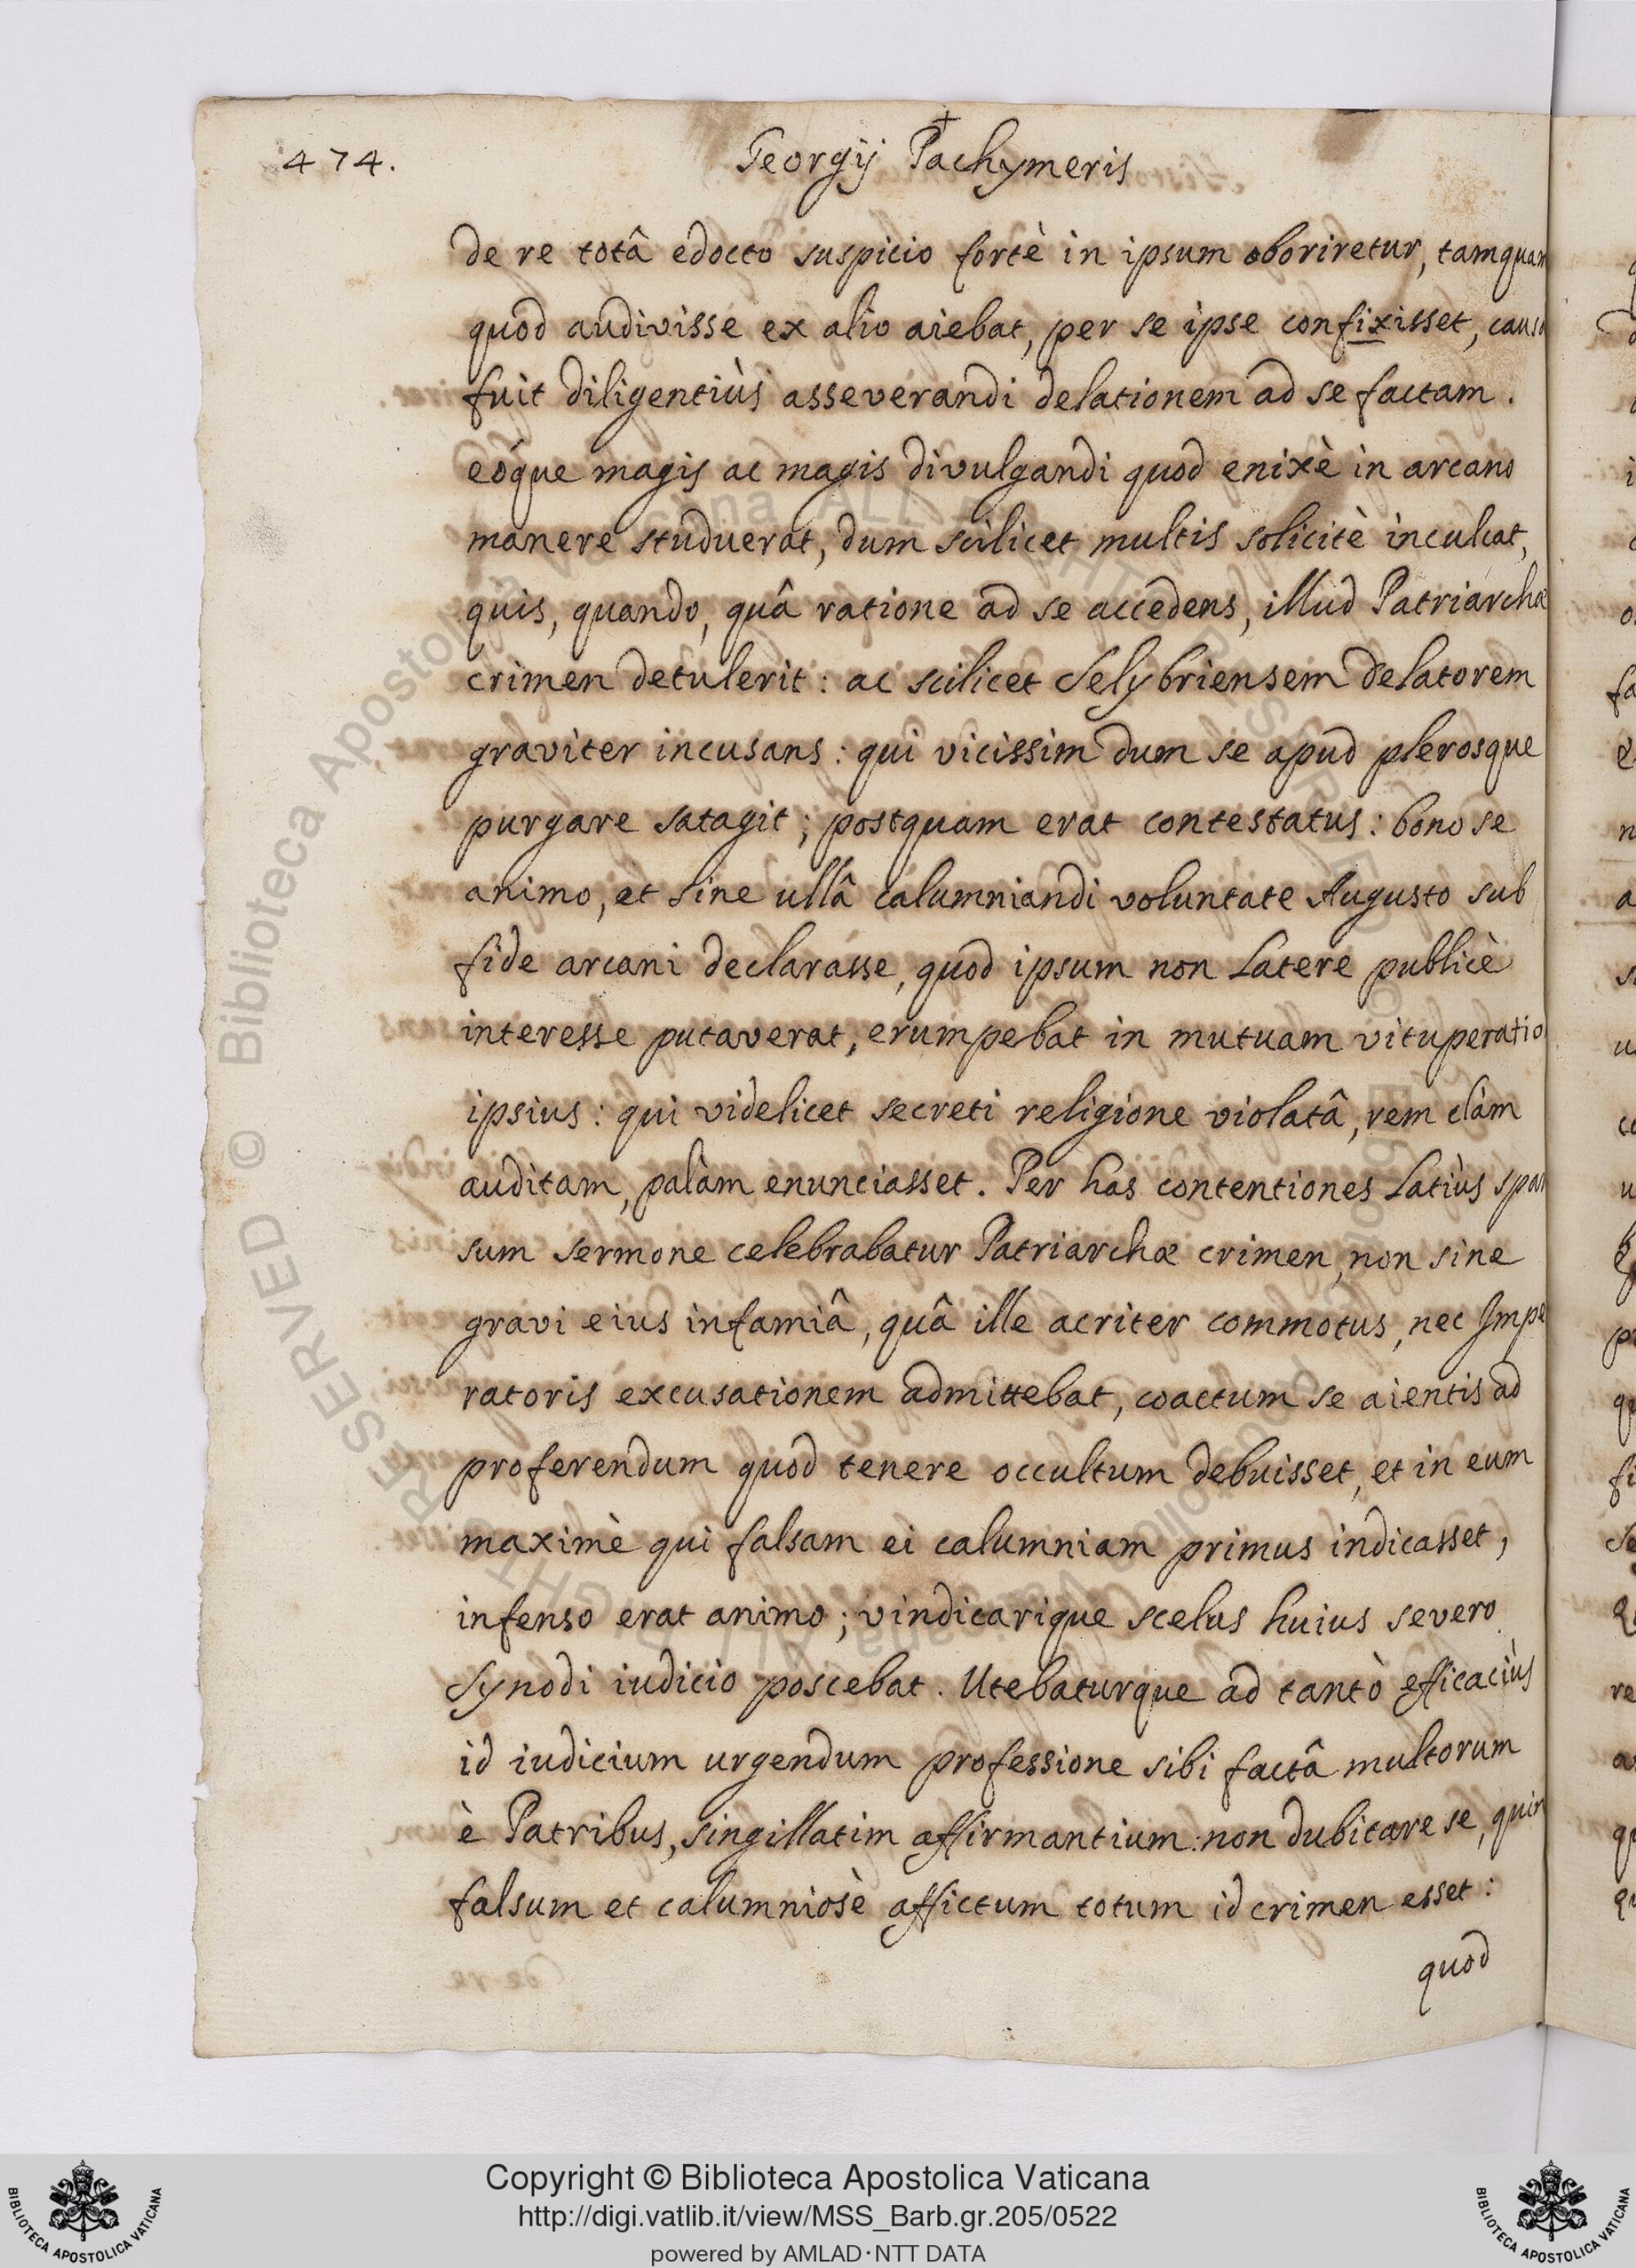 474.
Georgij Pachymeris
de re totâ edocto suspicio fortè in ipsum oboriretur, tamquam
quod audivisse ex alio aiebat, per se ipse confixisset, causa
fuit diligentiùs asseverandi delationem ad se factam.
eóque magis ac magis divulgandi quod enixè in arcano
manere studuerat, dum scilicet multis solicitè inculcat,
quis, quando, quâ ratione ad se accedens, illud Patriarchæ
crimen detulerit: ac scilicet Selybriensem delatorem
graviter incusans: qui vicissim dum se apud plerosque
purgare satagit; postquam erat contestatus: bono se
animo, et sine ullâ calumniandi voluntate Augusto sub
fide arcani declarasse, quod ipsum non latere publicè
interesse putaverat, erumpebat in mutuam vituperatio
ipsius: qui videlicet secreti religione violatâ, rem clàm
auditam, palàm enunciasset. Per has contentiones latiùs spar
sum sermone celebrabatur Patriarchæ crimen, non sine
gravi eius infamiâ, quâ ille acriter commotus, nec Impe
ratoris excusationem admittebat, coactum se aientis ad
proferendum quod tenere occultum debuisset, et in eum
maximè qui falsam ei calumniam primus indicasset,
infenso erat animo; vindicarique scelus huius severo
Synodi iudicio poscebat. Utebaturque ad tantò efficaciùs
id iudicium urgendum professione sibi factâ multorum
è Patribus, singillatim affirmantium: non dubitare se, quin
falsum et calumniosè affictum totum id crimen esset:
quod
Copyright © Biblioteca Apostolica Vaticana
http://digi.vatlib.it/view/MSS_Barb.gr.205/0522
powered by AMLAD·NTT DATA
BIBLIOTECA APOSTOLICA VATICANA
BIBLIOTECA APOSTOLICA VATICANA